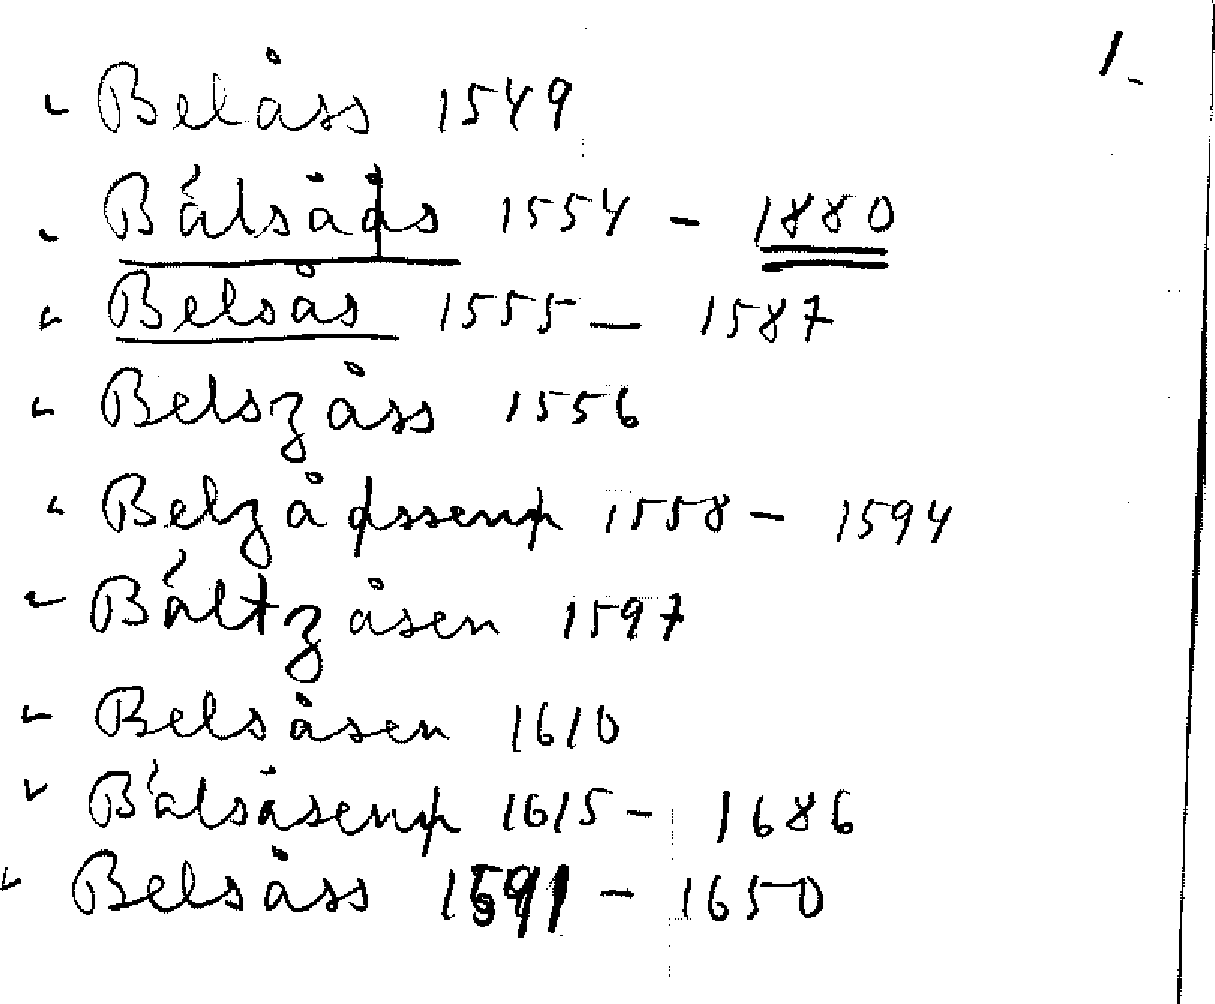 1.
" Belåss 1549
" Bålsåås 1554 - 1880
" Belsås 1555 - 1587
" Belszåss 1556
" Belzå 1558 - 1594
" Båltzåsen 1597
" Belsåsen 1610
" 1615 - 1686
" Belsåss 1591 - 1650